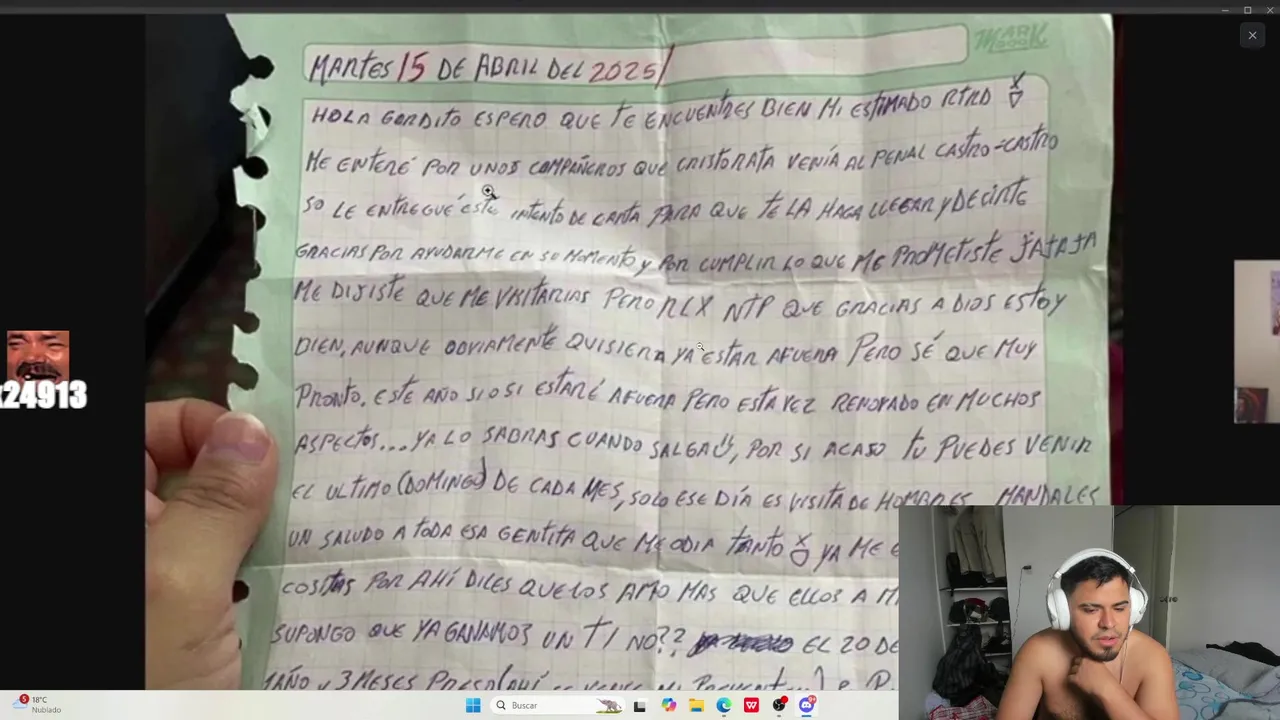 MARK
MARTES 15 DE ABRIL DEL 2025/
HOLA GORDITO ESPERO QUE TE ENCUENTRES BIEN MI ESTIMADO RTRD
ME ENTERÉ POR UNOS COMPAÑEROS QUE CRISTORATA VENÍA AL PENAL CASTRO-CASTRO
SO LE ENTREGUÉ ESTE INTENTO DE CARTA PARA QUE TE LA HAGA LLEGAR Y DECIRTE
GRACIAS POR AYUDARME EN SU MOMENTO Y POR CUMPLIR LO QUE ME PROMETISTE JAJAJA
ME DIJISTE QUE ME VISITARIAS PERO RLX NTP QUE GRACIAS A DIOS ESTOY
BIEN, AUNQUE OBVIAMENTE QUISIERA YA ESTAR AFUERA PERO SÉ QUE MUY
PRONTO. ESTE AÑO SI O SI ESTARÉ AFUERA PERO ESTA VEZ RENOVADO EN MUCHOS
ASPECTOS... YA LO SABRAS CUANDO SALGA, POR SI ACASO TU PUEDES VENIR
EL ULTIMO (DOMINGO) DE CADA MES, SOLO ESE DÍA ES VISITA DE HOMBRES MANDALES
UN SALUDO A TODA ESA GENTITA QUE ME ODIA TANTO YA ME
COSITAS POR AHÍ DILES QUE LOS AMO MAS QUE ELLOS A M
SUPONGO QUE YA GANAMOS UN TI NO?? EL 20 DE
1AÑO Y 3 MESES PRESO (AHÍ
24913
5
18°C
Nublado
Buscar